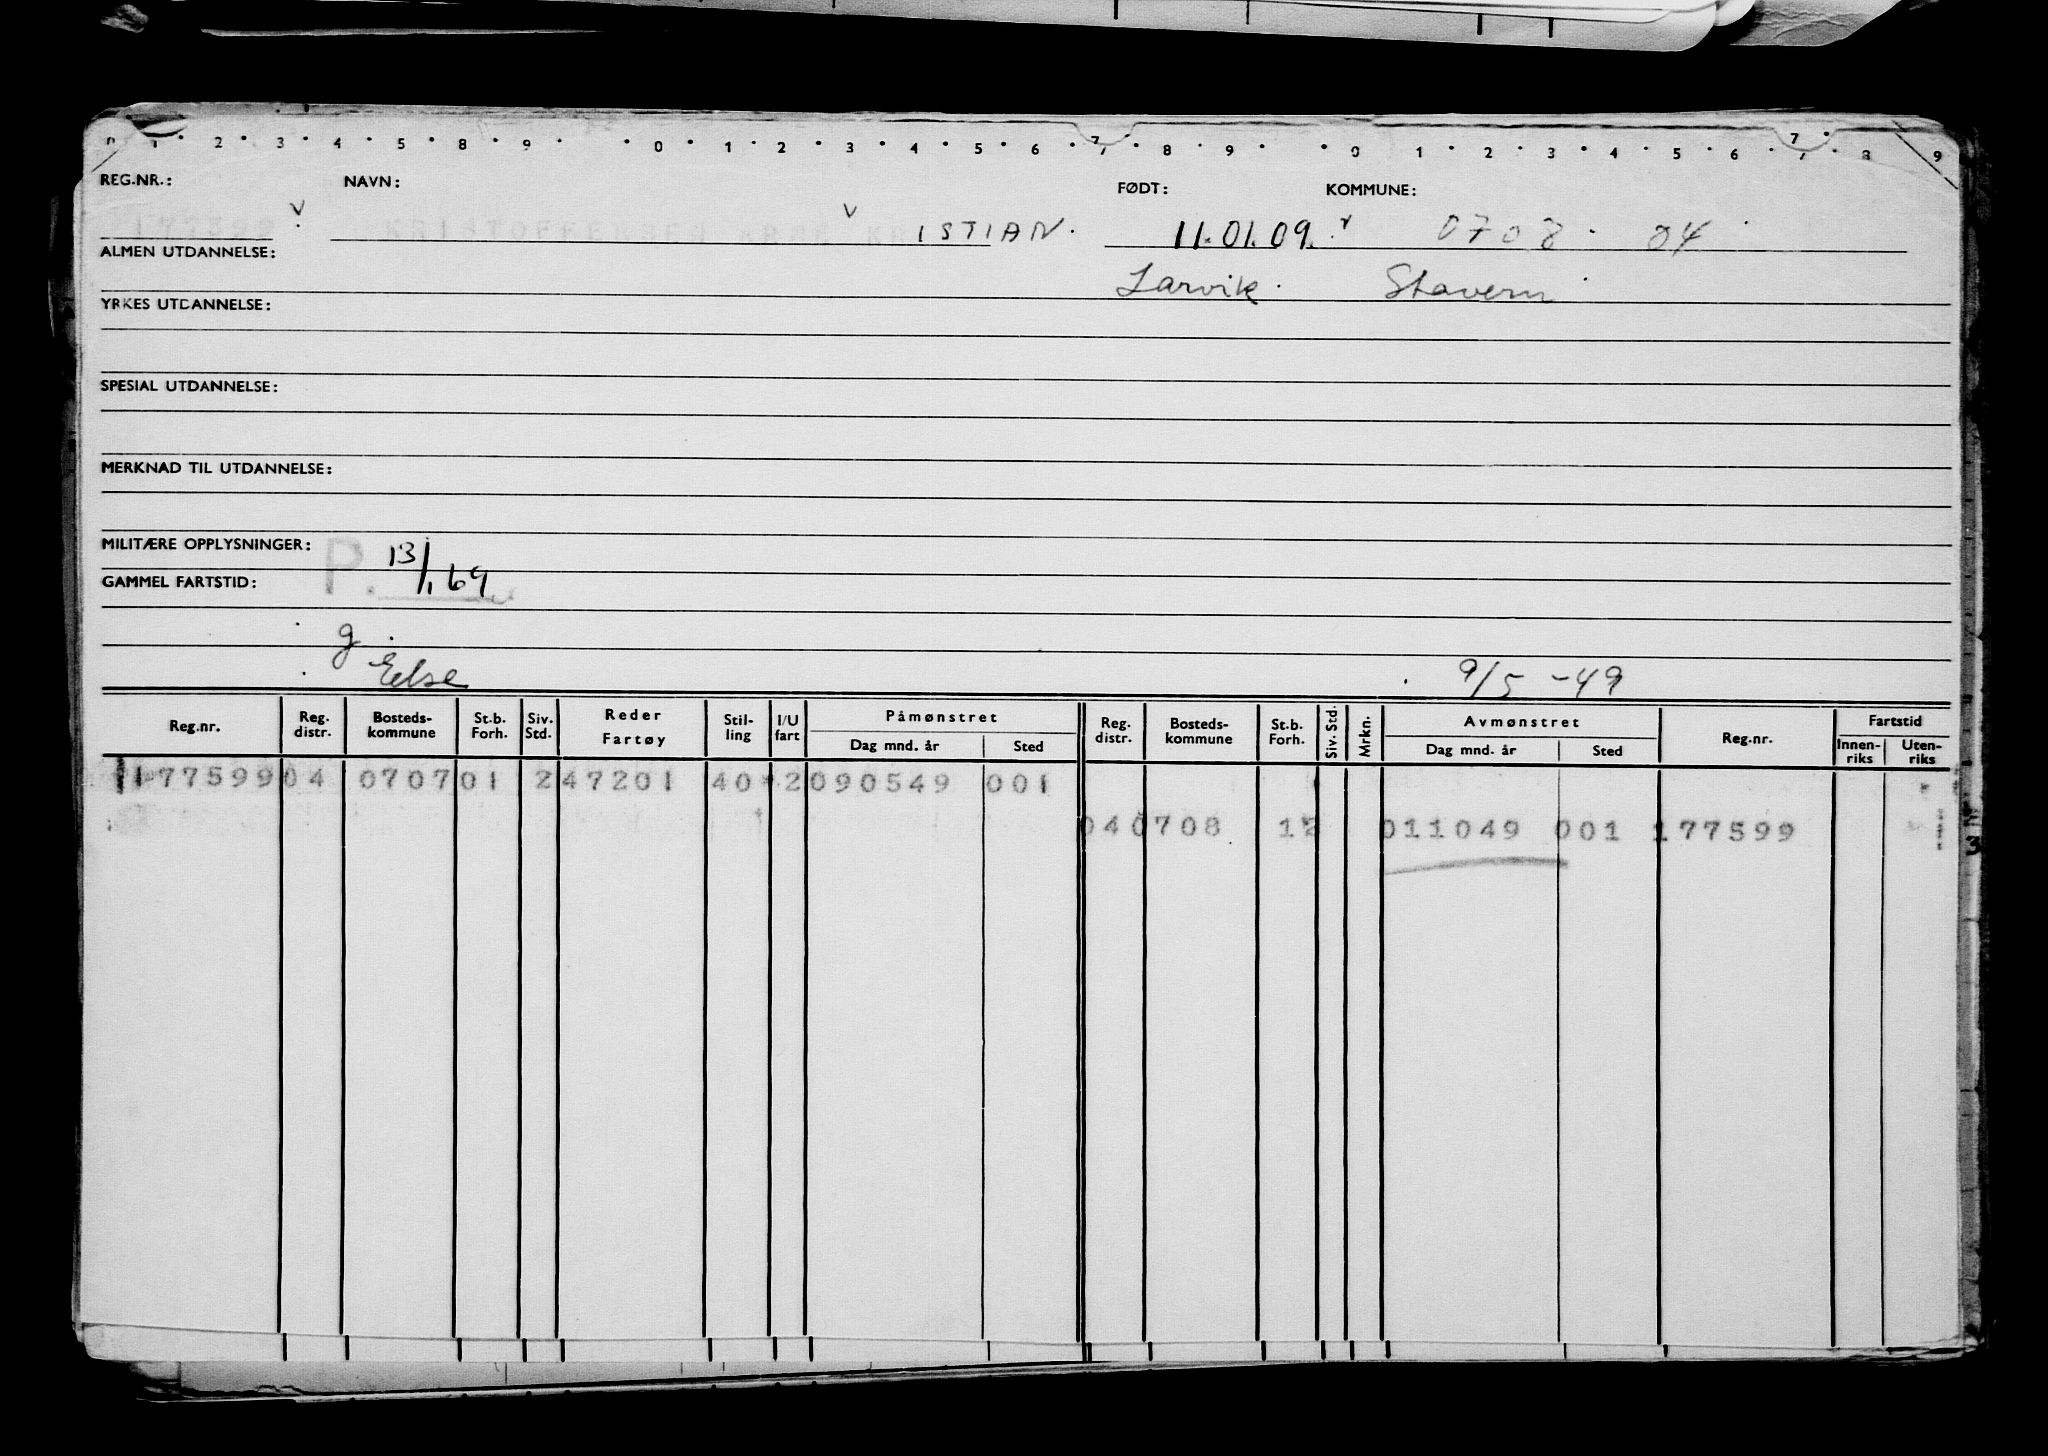 1 2 3 4 5 6 8 9 0 1 2 3 4 5 6 7 8 9 0 1 2 3 4 5 6 7 8 9
REG.NR.: NAVN: FØDT: KOMMUNE:
177599 KRISTOFFERSEN ISTIAN. 11.01.09. 0708 04
ALMEN UTDANNELSE:
Larvik Stavern
YRKES UTDANNELSE:
SPESIAL UTDANNELSE:
MERKNAD TIL UTDANNELSE:
MILITÆRE OPPLYSNINGER:
P. 13/1 69
GAMMEL FARTSTID:
g
Else 9/5 -49
Reg.nr. Reg. distr. Bosteds-kommune St.b. Forh. Siv. Std. Reder Fartøy Stil-ling I/U fart Påmønstret Dag mnd. år Sted Reg. distr. Bosteds-kommune St.b. Forh. Siv. Std. Mrkn. Avmønstret Dag mnd. år Sted Reg.nr. Fartstid Innen-riks Uten-riks
177599 04 0707 01 2 47201 40 2 090549 001
04 0708 12 011049 001 177599